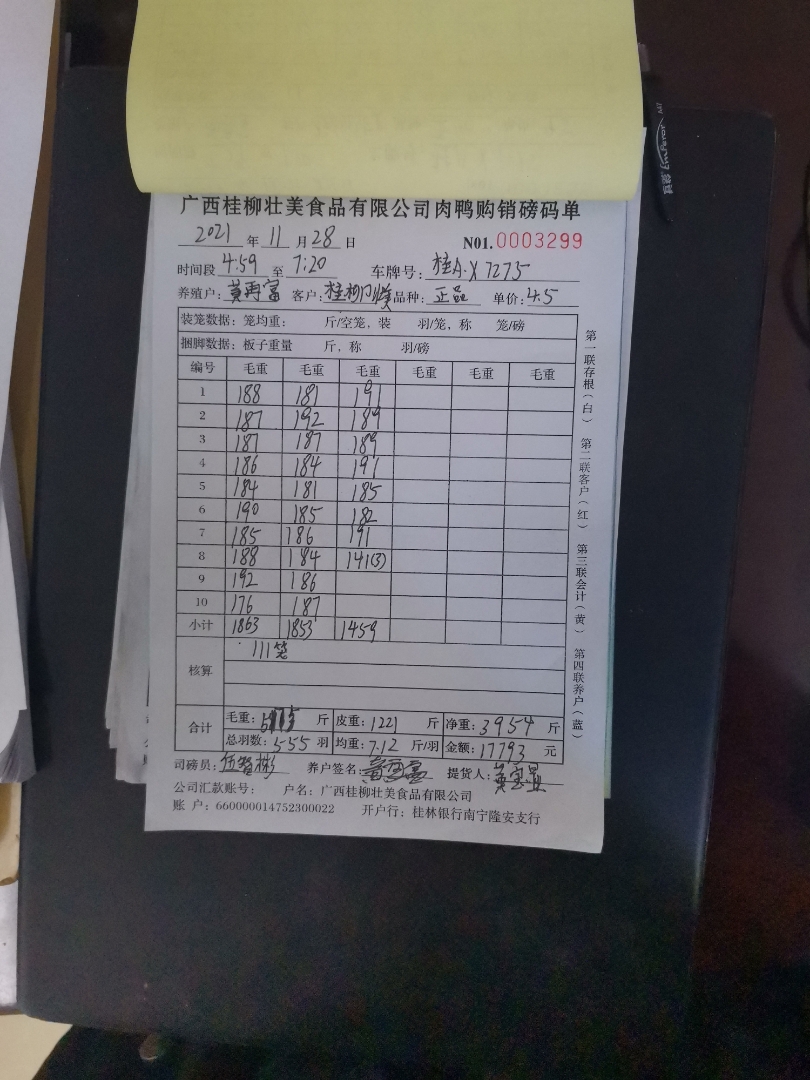 广西桂柳壮美食品有限公司肉鸭购销磅码单
2021 年 11 月 28 日 N01.0003299
时间段 4:59 至 7:20 车牌号: 桂A·X7275
养殖户: 黄再富 客户: 桂柳 品种: 正品 单价: 4.5
装笼数据: 笼均重: 斤/空笼, 装 羽/笼, 称 笼/磅
捆脚数据: 板子重量 斤, 称 羽/磅
编号 毛重 毛重 毛重 毛重 毛重 毛重
1 188 181 191
2 187 192 189
3 187 187 189
4 186 184 191
5 184 181 185
6 190 185 182
7 185 186 191
8 188 184 141(3)
9 192 186
10 176 187
小计 1863 1853 1459
核算 111笼
合计 毛重: 斤 皮重: 1221 斤 净重: 3954 斤
总羽数: 555 羽 均重: 7.12 斤/羽 金额: 17793 元
司磅员: 养户签名: 提货人:
公司汇款账号: 户名: 广西桂柳壮美食品有限公司
账 户: 660000014752300022 开户行: 桂林银行南宁隆安支行
第一联存根(白) 第二联客户(红) 第三联会计(黄) 第四联养户(蓝)